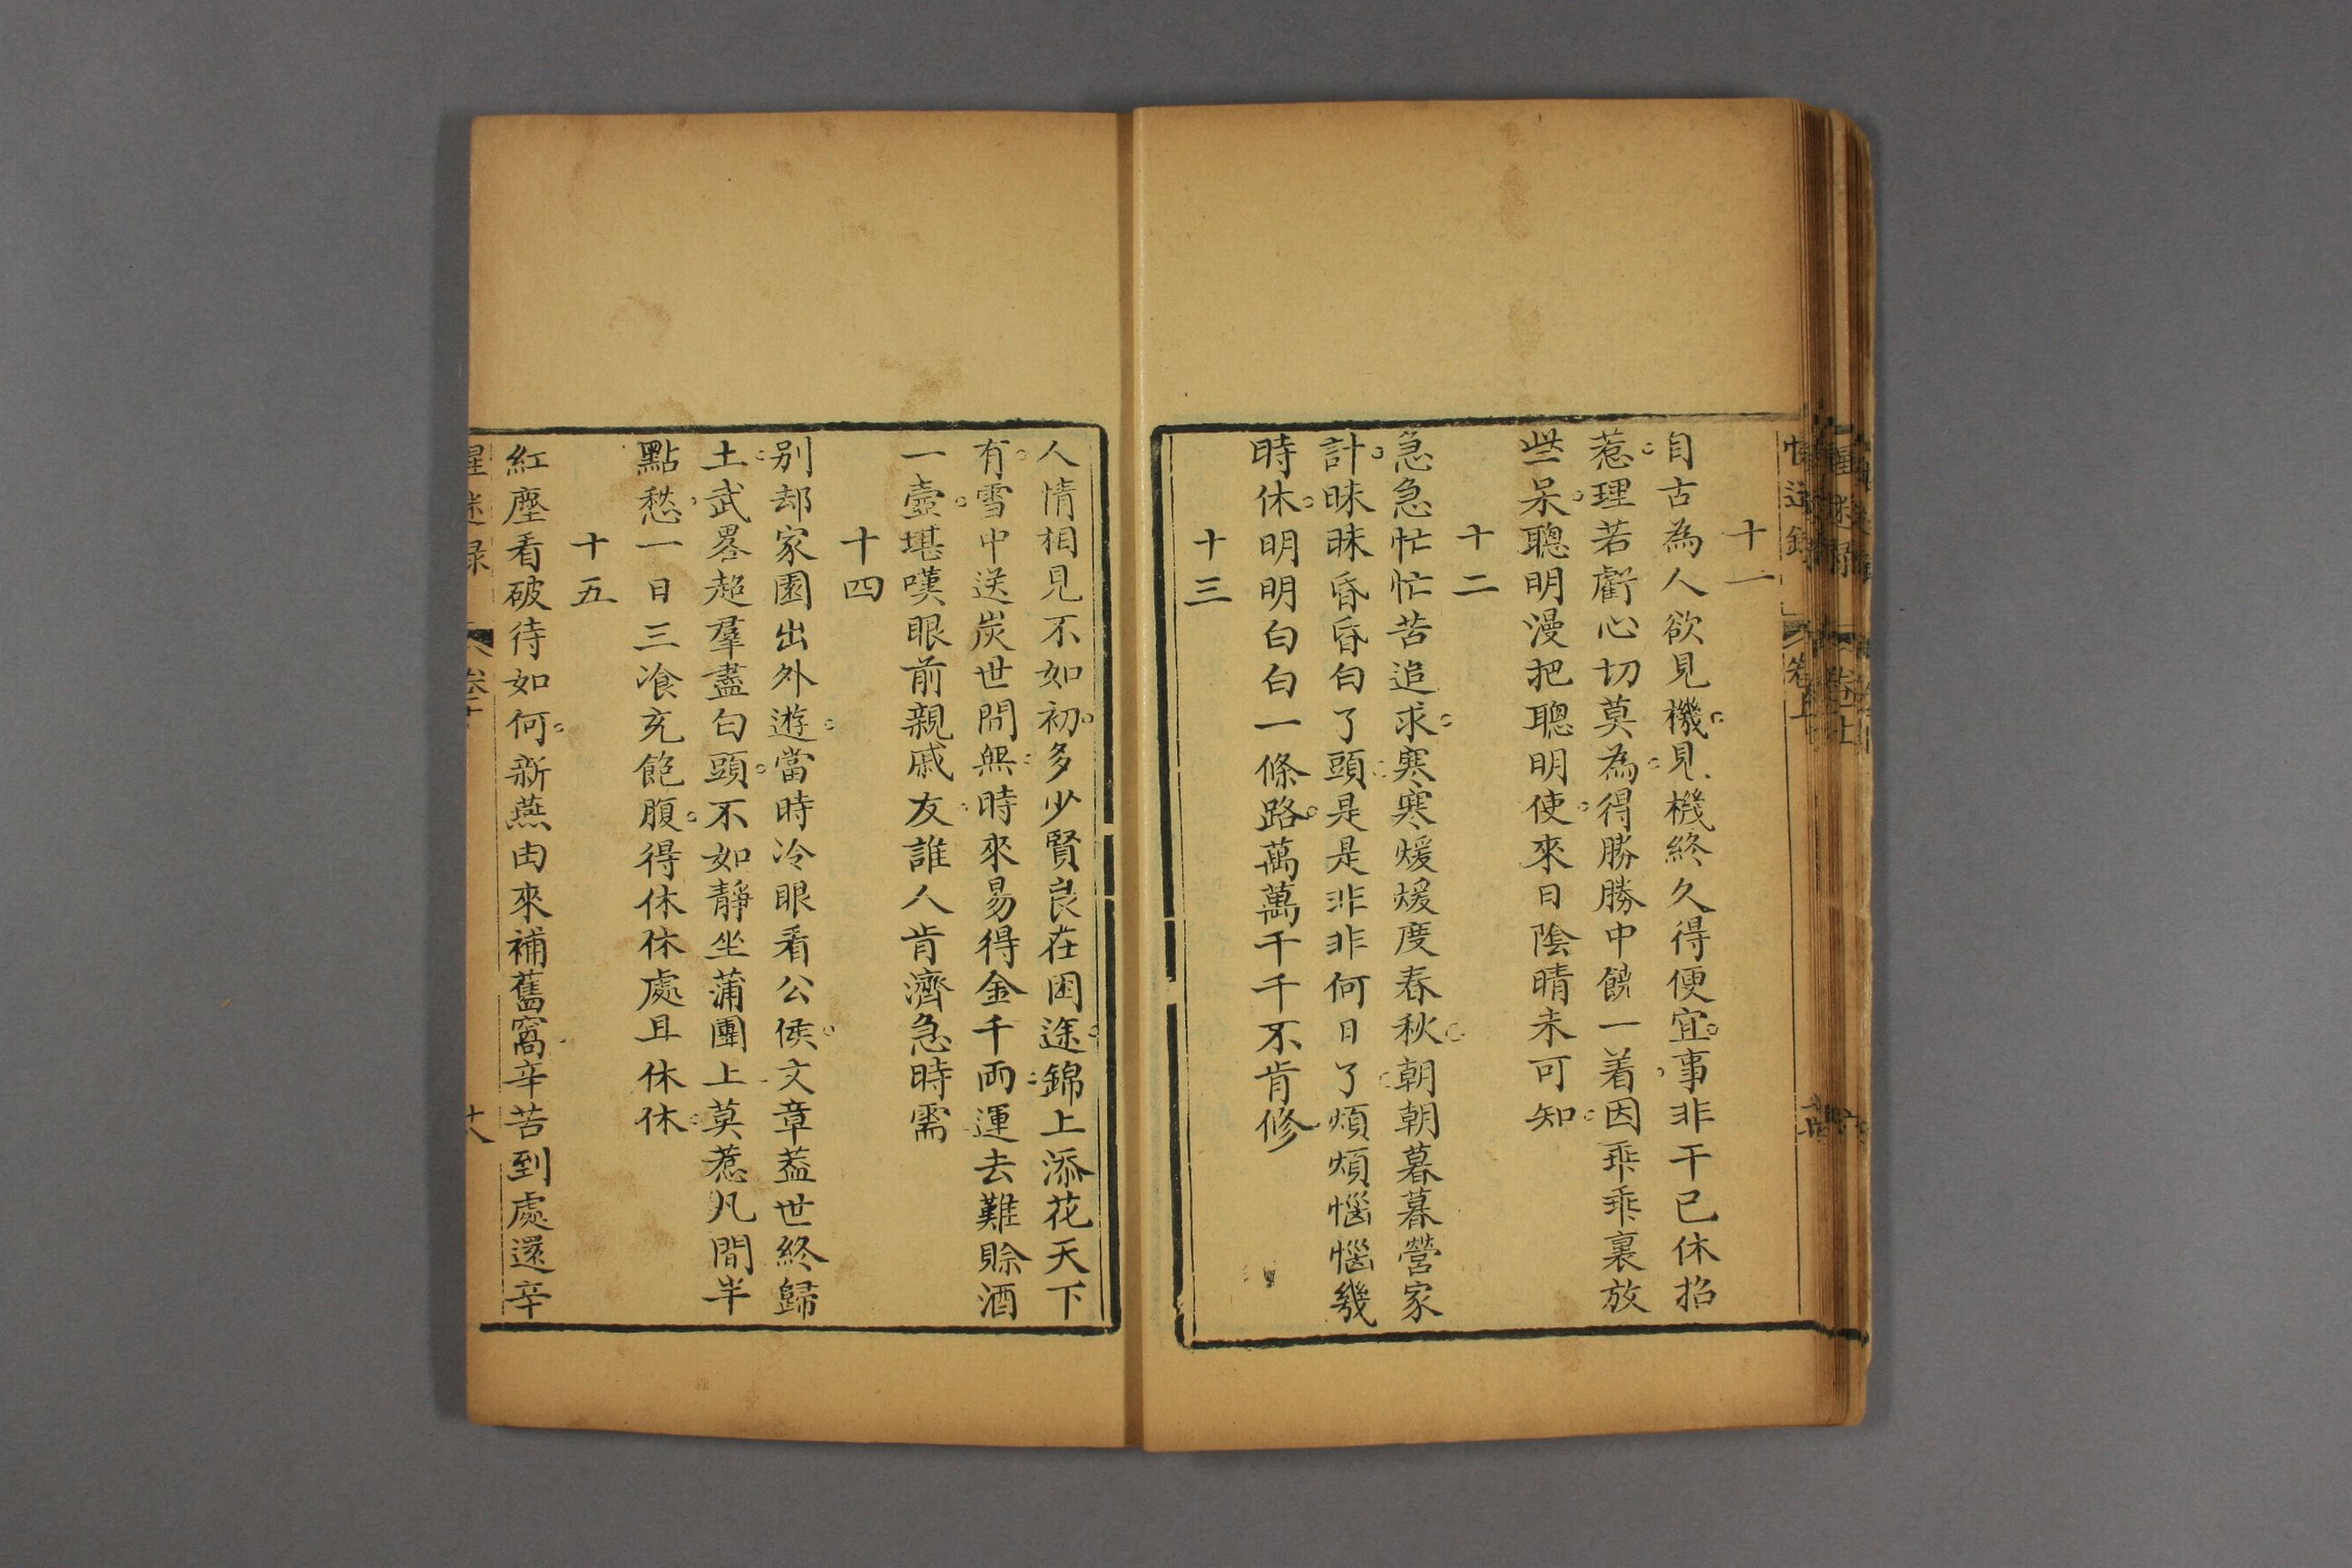 十一
自古為人欲見機見機終久得便宜事非干己休招
惹理若虧心切莫為得勝勝中饒一着因乖乖裏放
些呆聰明漫把聰明使來日陰晴未可知
十二
急急忙忙苦追求寒寒煖煖度春秋朝朝暮暮營家
計昧昧昏昏白了頭是是非非何日了煩煩惱惱幾
時休明明白白一條路萬萬千千不肯修
十三
人情相見不如初多少賢良在困途錦上添花天下
有雪中送炭世間無時來易得金千両運去難賒酒
一壺堪嘆眼前親戚友誰人肯濟急時需
十四
别却家園出外遊當時冷眼看公侯文章葢世終歸
土武畧超羣盡白頭不如靜坐蒲團上莫惹凡間半
點愁一日三飡充飽腹得休休處且休休
十五
紅塵看破待如何新燕由來補舊窩辛苦到處還辛
醒迷録